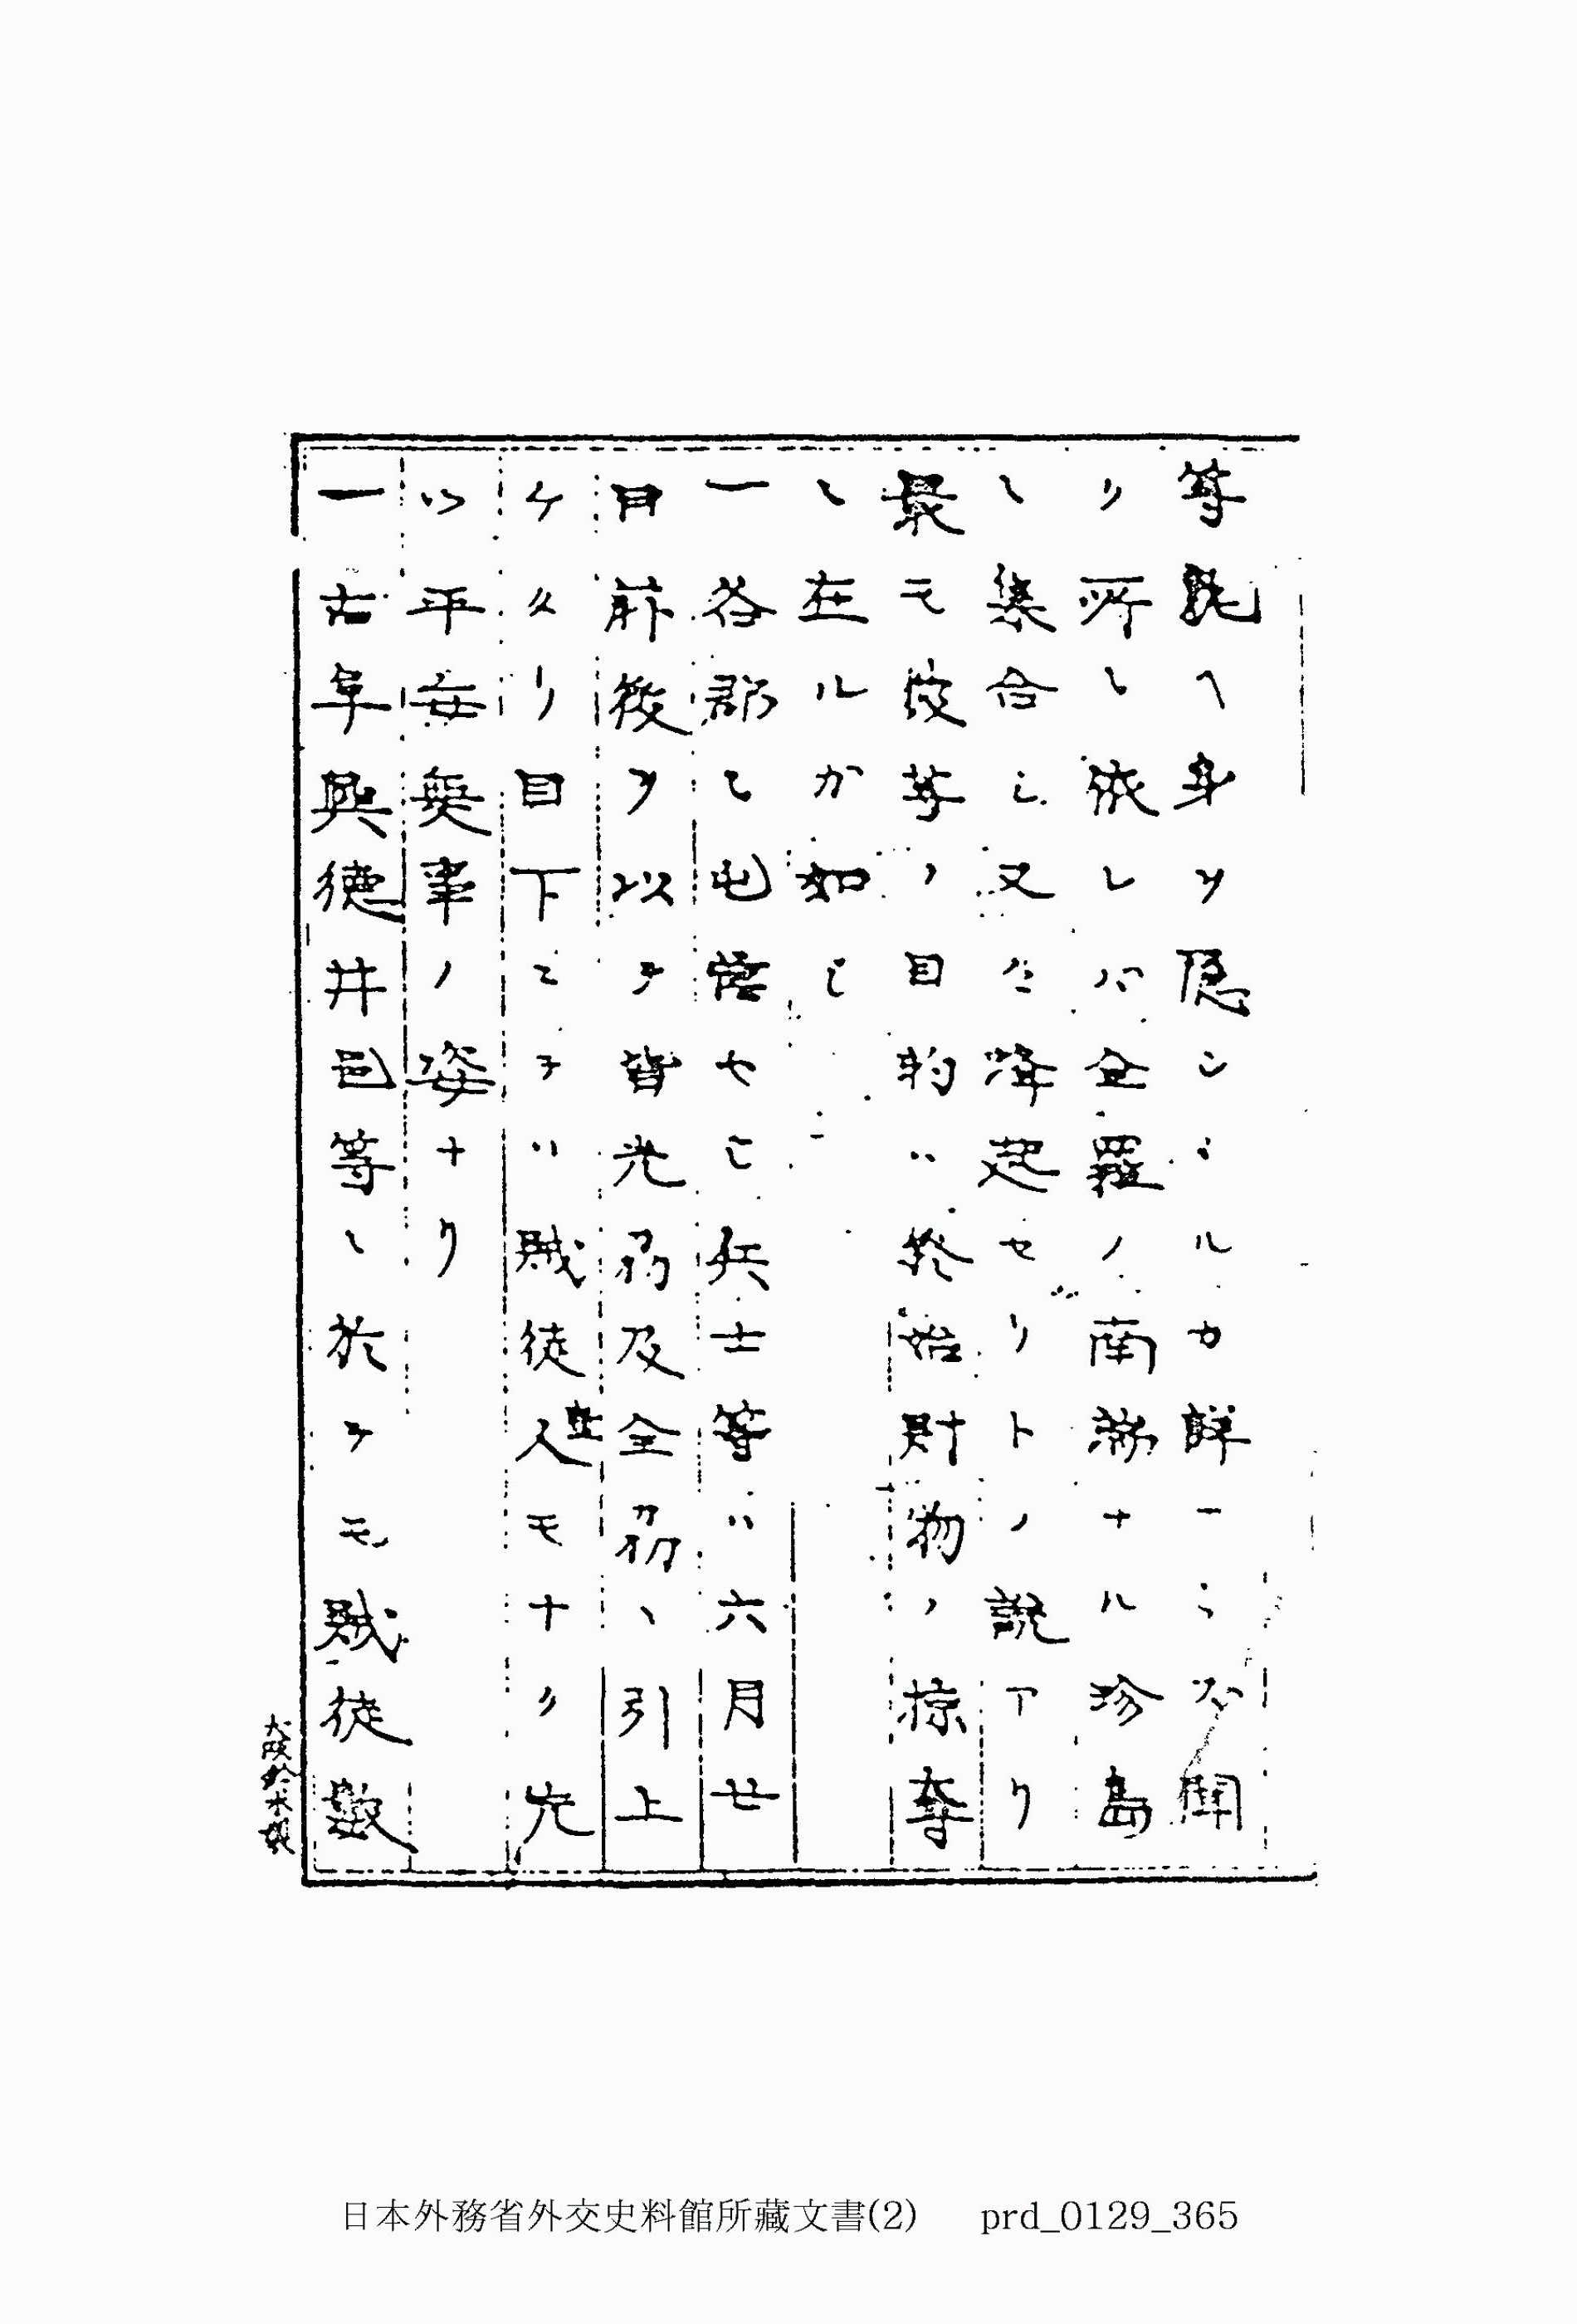 等既ヘ身ヲ隠シヽルカ詳ーニヽス聞
リ所ニ依レハ全羅ノ南端ナル珍島
ニ集合シ又々峰起セリトノ説アリ
最モ彼等ノ目的ハ終始財物ノ掠奪
ニ在ルカ如シ
一各郡ニ屯営セシ兵士等ハ六月廿
日前後ヲ以テ皆光州及全州ヘ引上
ケタリ目下ニテハ賊徒壱人モナク先
ツ平安無事ノ姿ナリ
一古阜興徳井邑等ニ於テモ賊徒数
日本外務省外交史料館所藏文書(2) prd_0129_365